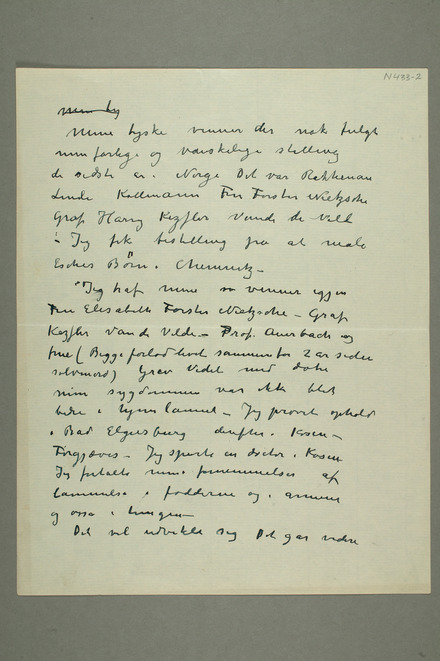 N 433-2
Mine tyske venner der nok fulgt
min farlige og vanskelige stilling
de sidste år i Norge Det var Rathenau
Linde Kollmann Fru Förster Nietzsche
Graf Harry Kezfler Vande de Veld
– Jeg fik bestilling på at male
Esches Børn i Chemnitz –
Jeg traf mine venner igjen
Fru Elisabeth Förster Nietzsche – Graf
Kezfler Van de Velde – Prof. Auerbach og
frue (Begge forlod livet sammen for 2 år siden
selvmord) Grev Vedel med datter
min sygdommen var ikke blet
bedre i lammet – Jeg prøvet ophold
i Bad Elgersburg derefter i Kösen –
Forgjæves – Jeg spurte en doctor i Kösen
Jeg fortalte mine fornemmelser af
lammelse i fødderne og i armene
og osså i tungen –
Det vil udvikle sig Det går videre